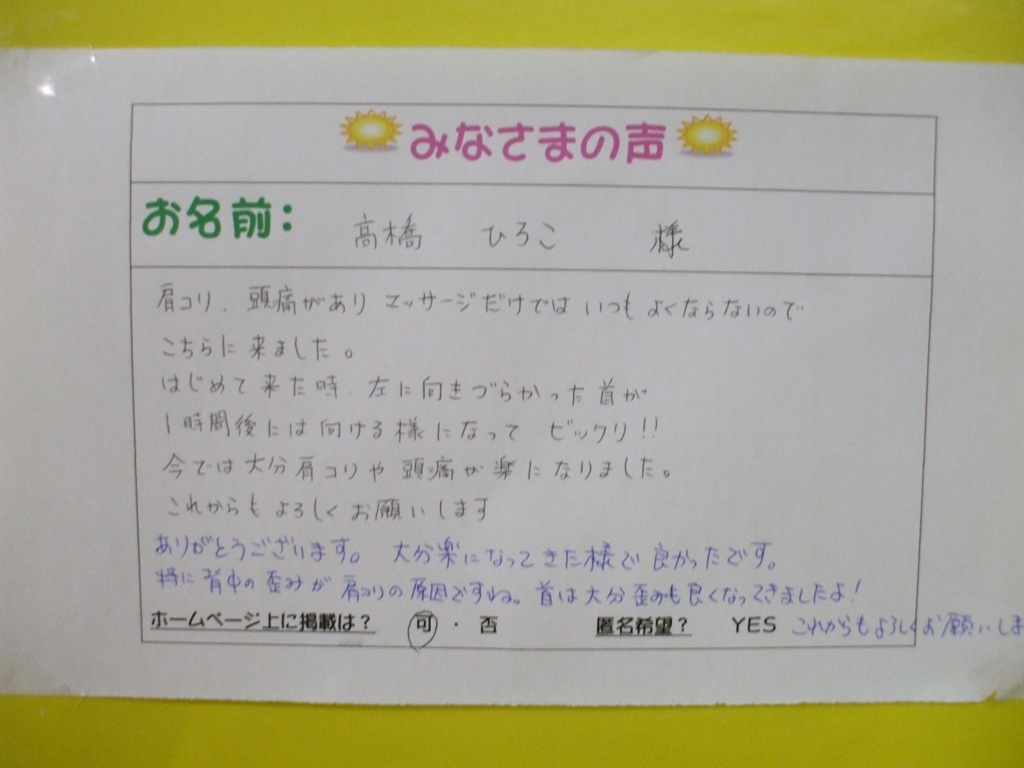 みなさまの声
お名前： 高橋 ひろこ 様
肩コリ、頭痛があり マッサージだけでは いつも よくならないので
こちらに 来ました。
はじめて 来た時、左に 向きづらかった 首が
1時間後には 向ける 様に なって ビックリ!!
今では 大分 肩コリや 頭痛が 楽に なりました。
これからも よろしく お願いします
ありがとうございます。 大分楽になってきた様で 良かったです。
特に 背中の 歪みが 肩コリの 原因ですね。首は大分歪みも良くなってきましたよ!
ホームページ上に掲載は？ 可 ・ 否 匿名希望？ YES これからもよろしくお願いしま